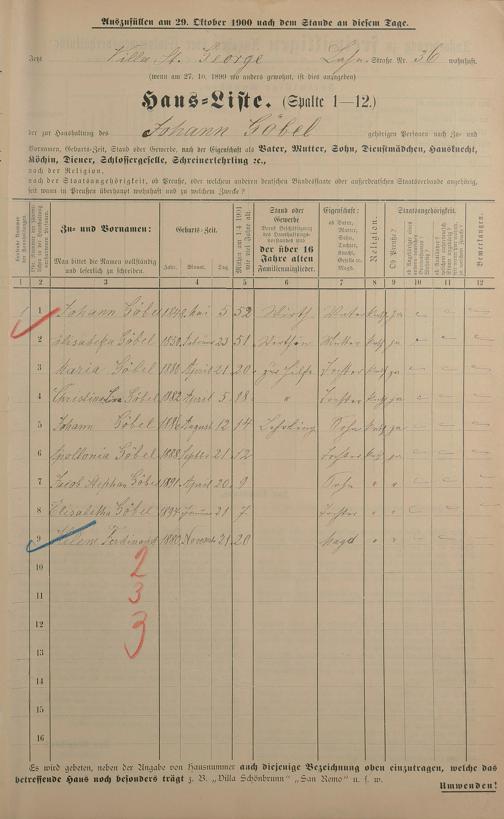 Auszufüllen am 29. Oktober 1900 nach dem Stande an diesem Tage.
Jetzt Villa St. George Lahn-Straße Nr. 36 wohnhaft.
(wenn am 27. 10. 1899 wo anders gewohnt, ist dies anzugeben)
Haus-Liste. (Spalte 1—12.)
der zur Haushaltung des Johann Göbel gehörigen Personen nach Zu- und
Vornamen, Geburts-Zeit, Stand oder Gewerbe, nach der Eigenschaft als Vater, Mutter, Sohn, Dienstmädchen, Hausknecht,
Köchin, Diener, Schlossergeselle, Schreinerlehrling ec.,
nach der Religion,
nach der Staatsangehörigkeit, ob Preuße, oder welchem anderen deutschen Bundesstaate oder außerdeutschen Staatsverbande angehörig,
seit wann in Preußen überhaupt wohnhaft und zu welchem Zwecke?
Zu- und Vornamen: Geburts-Zeit. Stand oder Gewerbe Eigenschaft: Religion. Staatsangehörigkeit. Bemerkungen.
Man bittet die Namen vollständig und leserlich zu schreiben. Jahr. Monat. Tag. der über 16 Jahre alten Familienmitglieder. Vater, Mutter, Sohn, Tochter, Knecht, Geselle u. Magd. Ob Preuße?
1 2 3 4 5 6 7 8 9 10 11 12
1 Johann Göbel 1848 Mai 5 52 Wirth Vater kath ja
2 Elisabetha Göbel 23 51 Mutter kath ja
3 Maria Göbel 1880 April 21 20 zur Hilfe Tochter kath ja
4 Christina Göbel 1882 April 5 18 " Tochter kath ja
5 Johann Göbel 1886 August 12 14 Lehrling Sohn kath ja
6 Apollonia Göbel 1888 Septbr 21 12 Tochter kath ja
7 Jacob Stephan Göbel 1891 April 20 9 Sohn " "
8 Elisabetha Göbel Januar 21 7 Tochter " "
9 Helene Ferdinand 1880 Novemb 21 20 Magd " "
10 2
11 3
12 3
13
14
15
16
Es wird gebeten, neben der Angabe von Hausnummer auch diejenige Bezeichnung oben einzutragen, welche das
betreffende Haus noch besonders trägt z. B. „Villa Schönbrunn" „San Remo" u. s. w.
Umwenden!